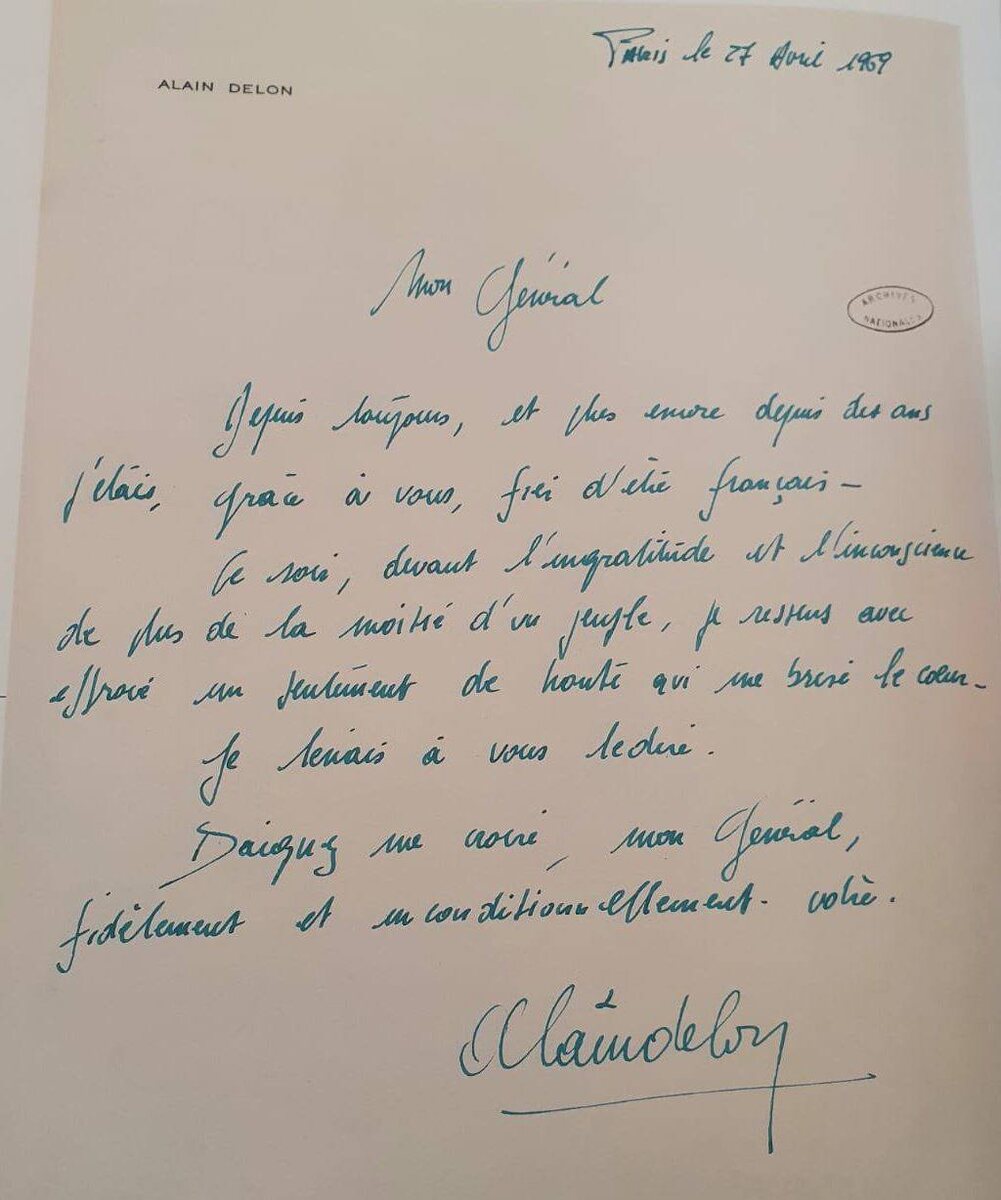 Paris le 27 Avril 1969
ALAIN DELON
Mon Général
ARCHIVES
NATIONALES
Depuis toujours, et plus encore depuis dix ans
j'étais, grâce à vous, fier d'être français –
Ce soir, devant l'ingratitude et l'inconscience
de plus de la moitié d'un peuple, je ressens avec
effroi un sentiment de honte qui me brise le cœur –
Je tenais à vous le dire.
Daignez me croire, mon Général,
fidèlement et inconditionnellement. votre.
Alain delon